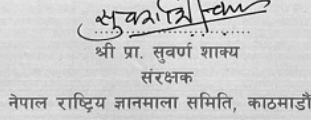 श्री प्रा. सुवर्ण शाक्य
संरक्षक
नेपाल राष्ट्रिय ज्ञानमाला समिति, काठमाडौं